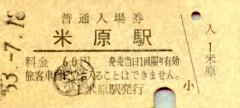 53.-7.18
普通入場券
米原駅
料金 60円 発売当日1回限り有効
旅客車内に立ち入ることはできません。
米原駅発行
入 米原
小